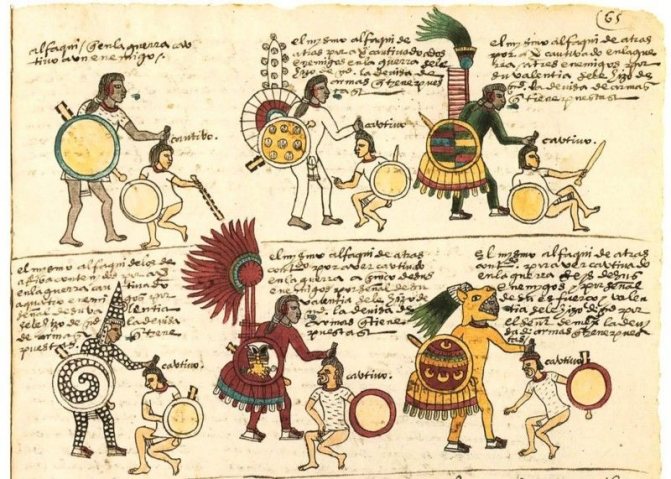 65
alfaqui / q en la guerra cau
tivo a un enemigo /.
cautivo.
el mismo alfaqui de
atras por a v cautivado dos
enemigos en la guerra sele
hizo de la devisa de
armas q tiene pues
tas
cautivo
el mismo alfaqui de atras
por a v cautivado en la gue
rra a tres enemigos por
su valentia sele hizo de
la devisa de armas
q tiene puestas
cautivo.
el mismo alfaqui de los de
atras
en la guerra
enemi gos por
señal de su va lentia
sele hizo la devisa
de armas tiene
puestas
cautivo.
el mismo alfaqui de atras
por aver cautivado
en la guerra a cinco
por señal de su
valentia sele hizo
la devisa de
armas q tiene
puestas
cautivo.
El mismo alfaqui de atras
por aver cautivado
en la guerra seis
enemigos / por señal
de su esfuerço / valen
tia sele hizo por
el señor de mexico la de vi
sa de armas q tiene pues
tas
cautivo